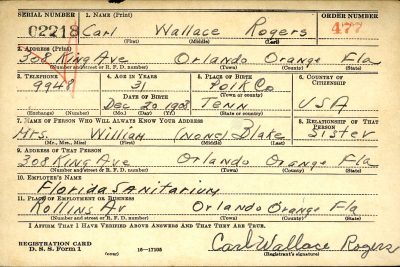 SERIAL NUMBER 1. NAME (Print) ORDER NUMBER
02218 Carl Wallace Rogers 477
(First) (Middle) (Last)
2. ADDRESS (Print)
308 King Ave Orlando Orange Fla
(Number and street or R. F. D. number) (Town) (County) (State)
3. TELEPHONE 4. AGE IN YEARS 5. PLACE OF BIRTH 6. COUNTRY OF CITIZENSHIP
9948 31 Polk Co
DATE OF BIRTH (Town or county)
Dec 20 1908 Tenn USA
(Exchange) (Number) (Mo.) (Day) (Yr.) (State or country)
7. NAME OF PERSON WHO WILL ALWAYS KNOW YOUR ADDRESS 8. RELATIONSHIP OF THAT PERSON
Mrs. William (none) Blake Sister
(Mr., Mrs., Miss) (First) (Middle) (Last)
9. ADDRESS OF THAT PERSON
308 King Ave Orlando Orange Fla
(Number and street or R. F. D. number) (Town) (County) (State)
10. EMPLOYER'S NAME
Florida Sanitarium
11. PLACE OF EMPLOYMENT OR BUSINESS
Rollins Av Orlando Orange Fla
(Number and street or R. F. D. number) (Town) (County) (State)
I AFFIRM THAT I HAVE VERIFIED ABOVE ANSWERS AND THAT THEY ARE TRUE.
REGISTRATION CARD
D. S. S. Form 1 16—17105 Carl Wallace Rogers
(Registrant's signature)